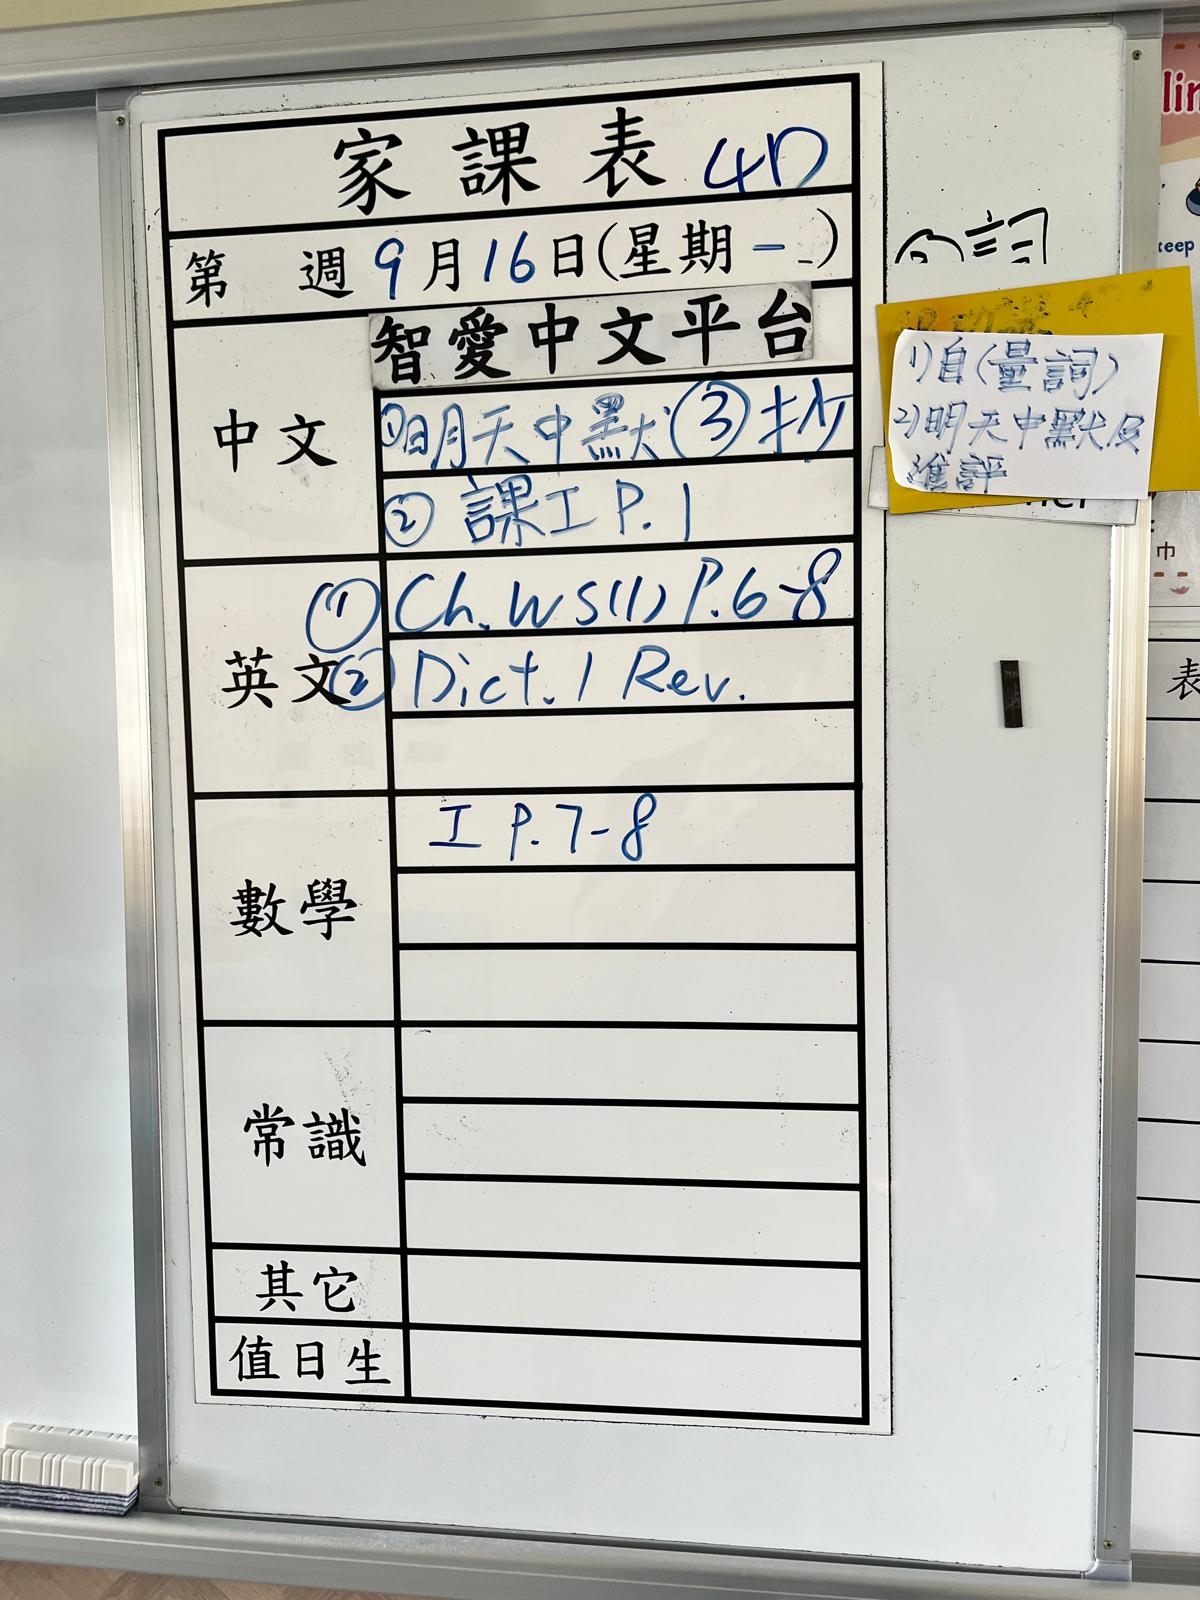 家課表 4D
第 週 9月16日(星期一)
中文
智愛中文平台
①明天中默③抄
② 課工 P.1
英文
① Ch. WS(1) P.6-8
② Dict. 1 Rev.
數學
工 P.7-8
常識
其它
值日生
詞
1)自(量詞)
2)明天中默及
進評
巾
表